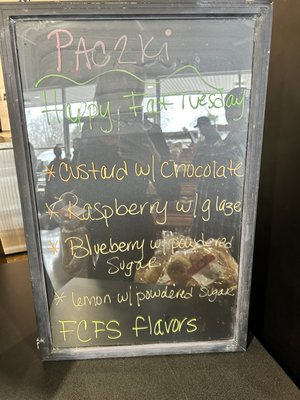 Paczki
Happy Fast Tuesday
* Custard w/ Chocolate
* Raspberry w/ glaze
* Blueberry w/ powdered
Sugar
* Lemon w/ powdered Sugar
FCFS flavors